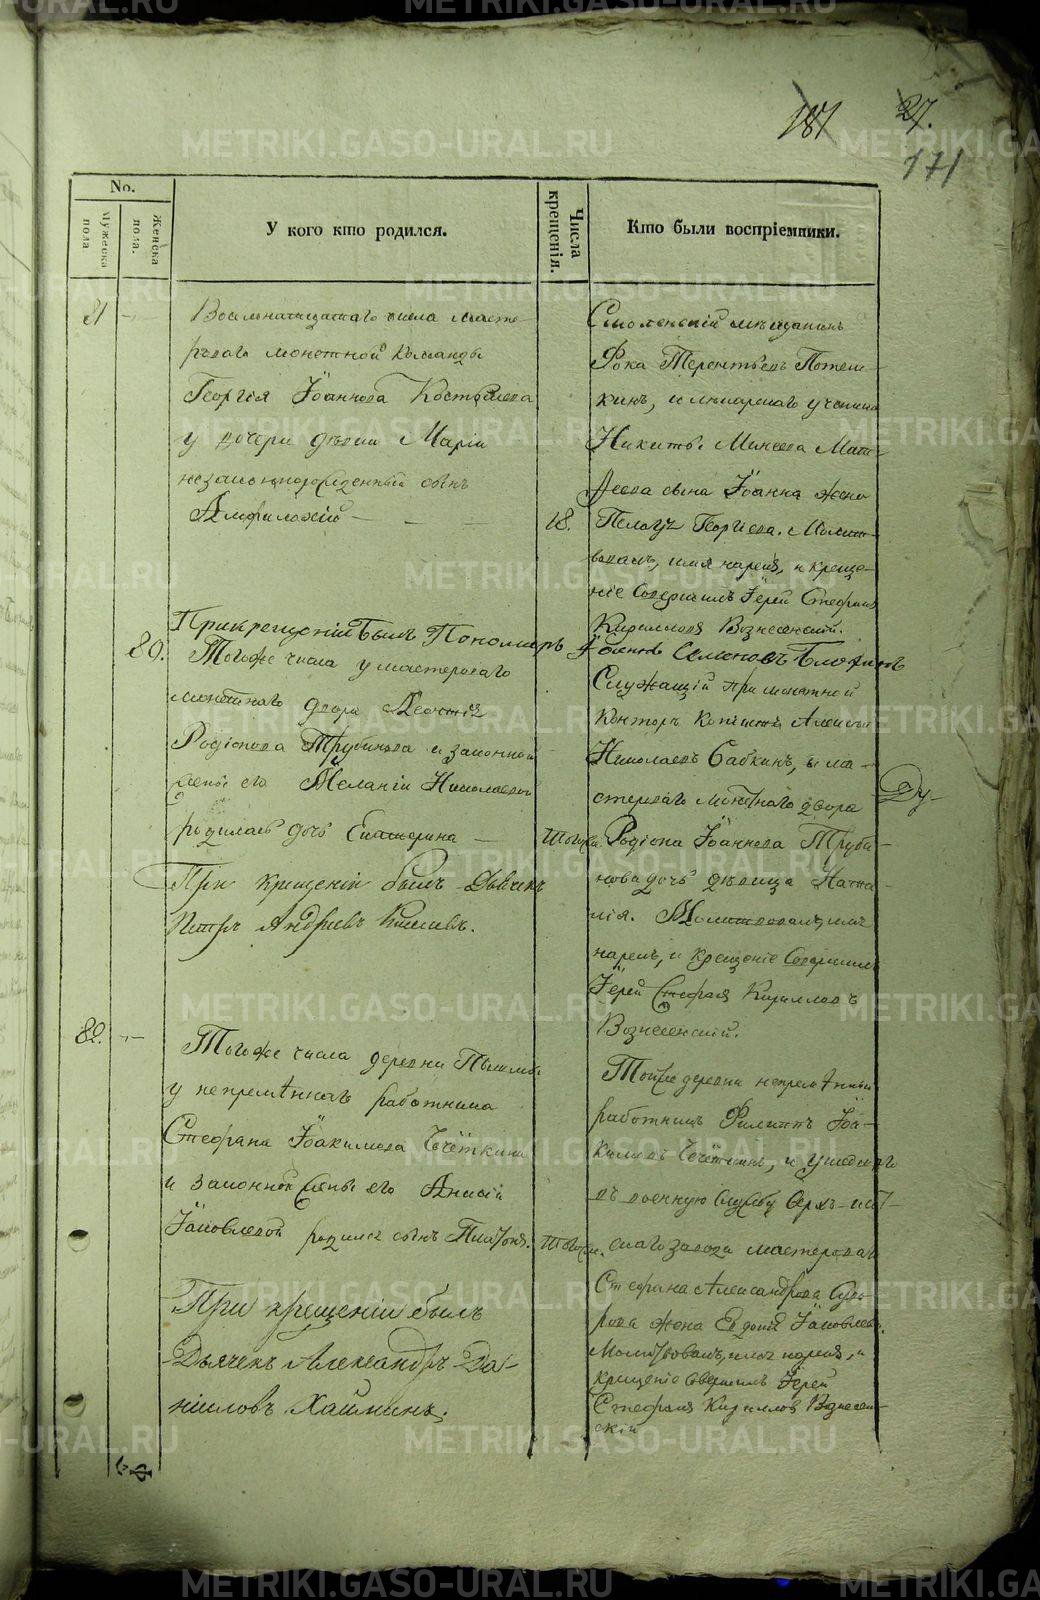 181 27.
171
No.
Мужеска пола
Женска пола.
У кого кто родился.
Числа крещенія.
Кто были воспріемники.
81
Восьмнатцатаго числа масте
роваго монетной команды
Георгія Іоаннова
у дочери девки Маріи
незаконнорожденный сынъ
Амфилохій
18.
Смоленскій мещанинъ
Фока Терентьевъ Потем-
кинъ, и лекарскаго ученика
Никиты Минеева Мат-
веева сына Іоанна жена
Георгіева. Молит-
вовалъ, имя нарекъ, и креще-
ніе Совершилъ Іерей Стефанъ
Кирилловъ Вознесенскій.
При крещеніи былъ Пономарь Семеновъ
80.
Тогоже числа у мастероваго
монетнаго двора Леонтія
Родіонова Трубинова и законной
жены его Меланіи Николаевой
родилась дочь Екатерина
тогожъ.
При крещеніи былъ Дьячекъ
Петръ Андреевъ
Служащій при монетной
Конторе Копеистъ Алексей
Николаевъ Бабкинъ, и ма-
стероваго монетнаго двора
Родіона Іоаннова Труби-
нова дочь девица Ната-
лія. Молитвовалъ, имя
нарекъ, и крещеніе Совершилъ
Іерей Стефанъ Кирилловъ
Вознесенскій.
Ду-
82.
Тогоже числа деревни Пышмы
у непременнаго работника
Стефана Іоакимова Чечеткина
и законной жены его Анисіи
Іаковлевой родился сынъ Платонъ.
тогожъ.
При крещеніи былъ
Дьячекъ Александръ Да-
ніиловъ Хаминъ.
Тойже деревни непременный
работникъ Филиппъ Іоа-
кимовъ Чечеткинъ, и ушедшаго
въ военную службу Верхъ-исет-
скаго завода мастероваго
Стефана Александрова
жена Евдокія Іаковлева.
Молитвовалъ, имя нарекъ, и
крещеніе Совершилъ Іерей
Стефанъ Кирилловъ Вознесен-
скій
METRIKI.GASO-URAL.RU